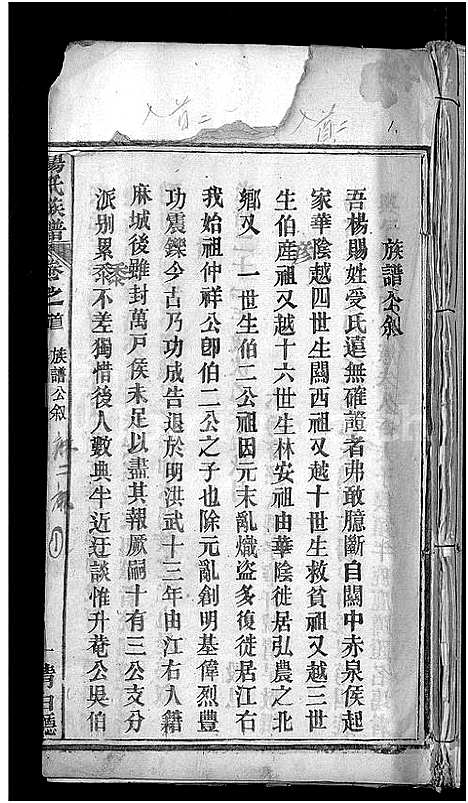 族譜公敘
吾楊賜姓受氏遠無確證者弗敢臆斷自關中赤泉侯起
家華陰越四世生關西祖又越十世生救貧祖又越三世
生伯産祖又越十六世生林安祖由華陰徙居弘農之北
彥
鄉又一世生伯二公祖因元末亂熾盜多復徙居江右
我始祖仲祥公卽伯二公之子也除元亂創明基偉烈豐
功震鑠今古乃功成告退於明洪武十三年由江右入籍
麻城後雖封萬戶侯未足以盡其報厥嗣十有三公支分
派别累黍不差獨惜後人數典半近迂談惟升菴公吳伯
黍
楊氏族譜 卷之首 族譜公敘 一 清白
首二
首二
1